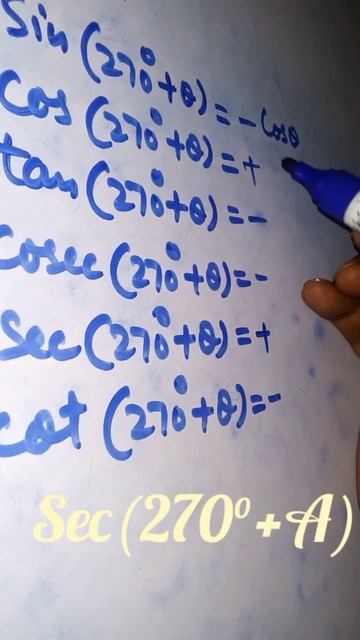 Sin (270°+θ) = - Cosθ
Cos (270°+θ) = +
tan (270°+θ) = -
Cosec (270°+θ) = -
Sec (270°+θ) = +
Cot (270°+θ) = -
Sec (270° + A)